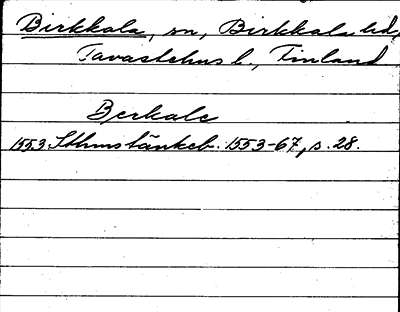 Birkkala, sn, Birkkala hd,
Tavastehus l., Finland
Berkale
1553 Sthms tänkeb. 1553-67, s. 28.